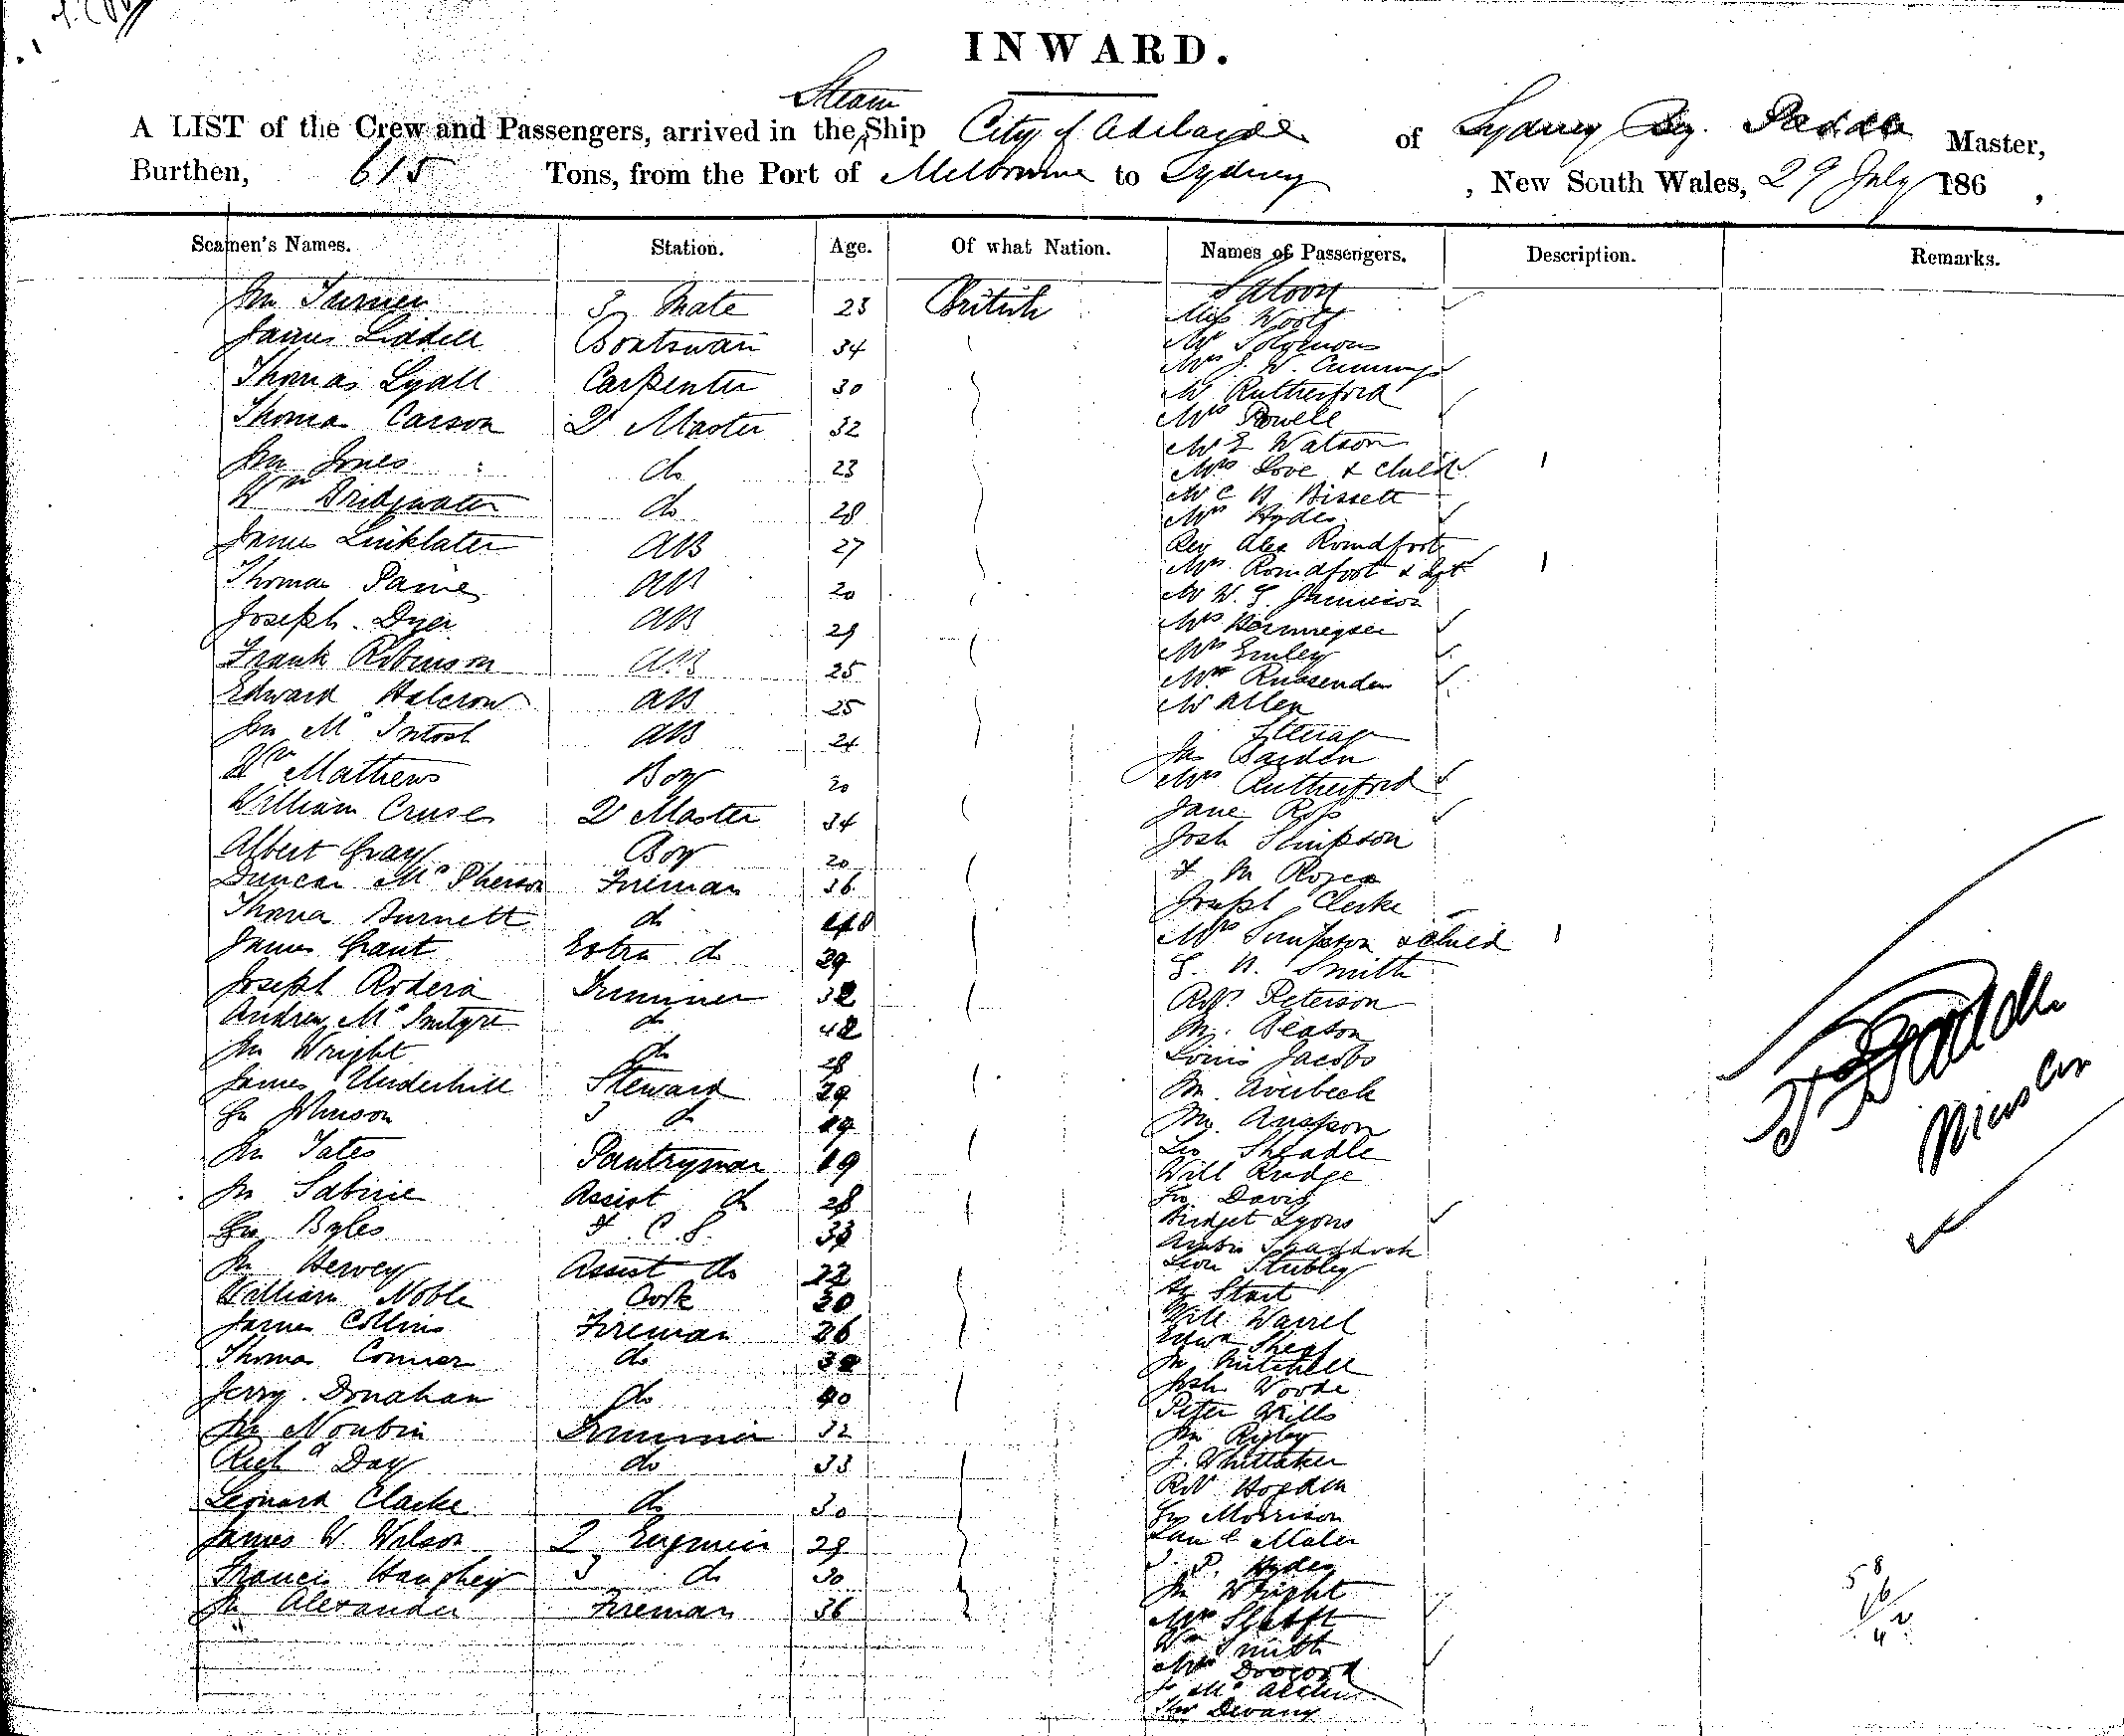 INWARD.
Steam
A LIST of the Crew and Passengers, arrived in the Ship City of Adelaide of Sydney Master,
Burthen, 615 Tons, from the Port of Melbourne to Sydney, New South Wales, 29 July 186 ,
Seamen's Names. Station. Age. Of what Nation. Names of Passengers. Description. Remarks.
Saloon
Jn Turner 3 Mate 23 British Miss Woolf
James Liddell Boatswain 34 Mr Solomons
Mrs J. W. Cummings
Thomas Lyall Carpenter 30 Mr Rutherford
Thomas Carson Qr Master 32 Mrs Powell
Mr E Watson
Jn Jones do 23 Mrs Love & child 1
Wm Bridgwater do 28 Mr C B Bissett
Mrs Hydes
James Linklater AB 27 Rev Alex Romdfoot
Thomas Paine AB 20 Mrs Romdfoot & Sgt 1
Mr W. S. Jamieson
Joseph Dyer AB 29
Frank Robinson AB 25 Mrs Emley
Edward Halcrow AB 25 Mr Allen
Jn McIntosh AB 24 Steerage
Wm Mathews Boy 20 Mrs Rutherford
William Cruse Qr Master 34 Jane Ross
Josh Simpson
Albert Gray Boy 20
Duncan McPherson Fireman 36 Joseph Clerke
Thomas Burnett do Mrs Simpson & child 1
James Grant Extra do 29 S. B. Smith
Joseph Rodera Trimmer 32 Robt Peterson
Andrew McIntyre do 42 M. Beaton
Jn Wright do 28 Louis Jacobs
James Underhill Steward 29 Jn. Averbeck
Jn Johnson 3 do 19
Jn Yates Pantryman 19 Leo Sheadle
Will Rudge
Jn Sabine Assist do 28 Geo Davis
Geo Byles F. C. S. 33 Bridget Lyons
Jn Hervey Assist do 22 Leon Stubley
William Noble Cook 20 Hy Start
James Collins Fireman 26 Will Warrel
Thomas Connor do 32 Jn Mitchell
Jerry Donahan do 40 Josh Woode
Peter Wills
Jn Noubin Trimmer 32 Jn Rigley
Richd Day do 33 J. Whittaker
Robt Hogden
Leonard Clarke do 30 Geo Morrison
James W Wilson 2 Engineer 29
Francis Haughey 3 do 30 Hydes
Jn Alexander Fireman 36 Jn Wright
Wm Smith
Thos Devany